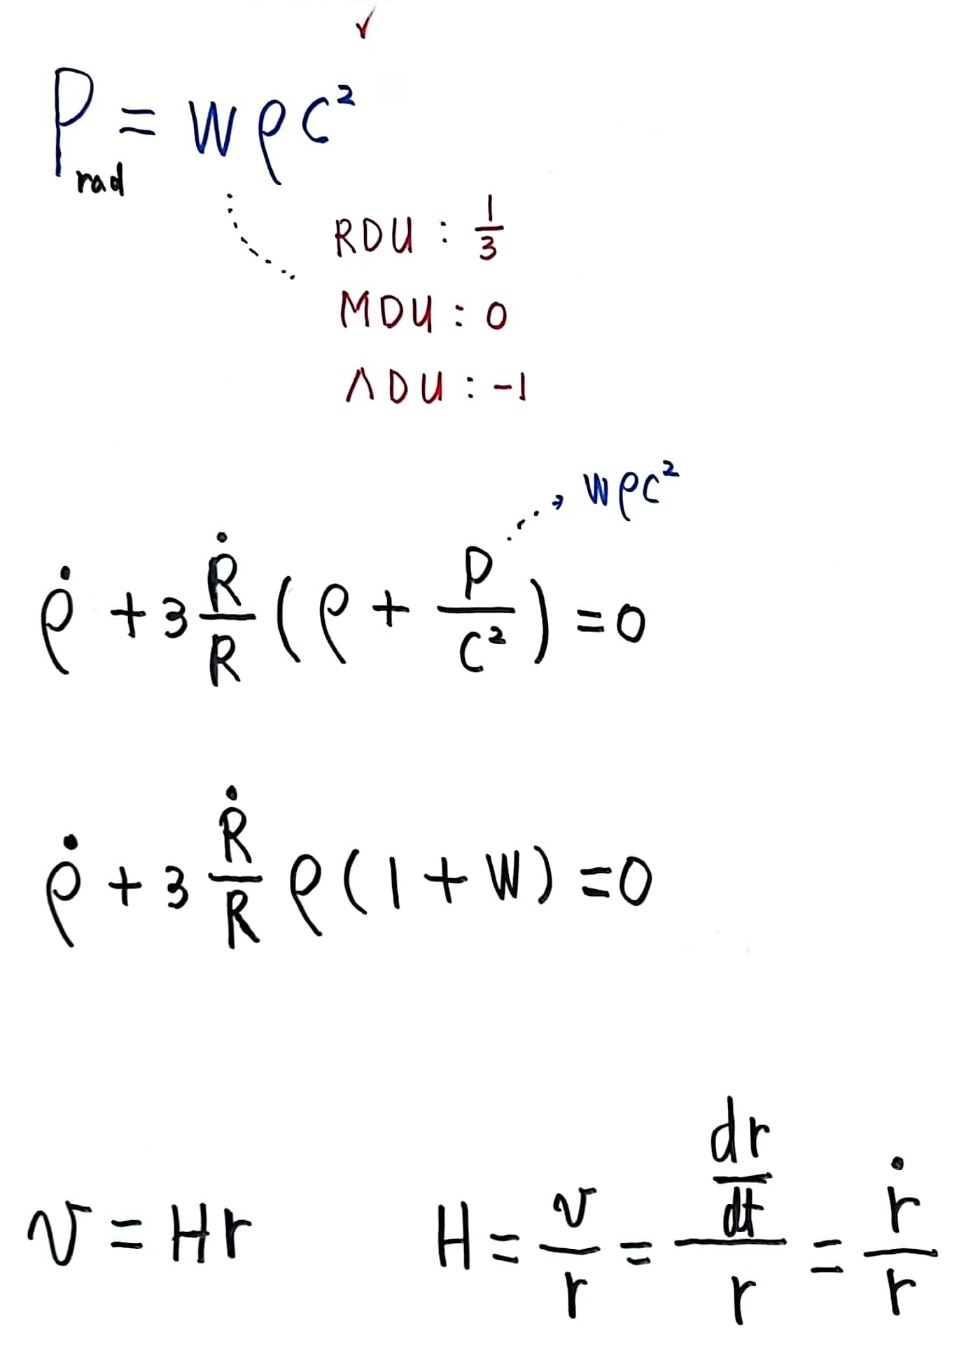 ✓
P_rad = wρc²
RDU : 1/3
MDU : 0
ΛDU : -1
wρc²
ρ̇ + 3 Ṙ/R (ρ + P/c²) = 0
ρ̇ + 3 Ṙ/R ρ(1 + w) = 0
v = Hr
H = v/r = (dr/dt)/r = ṙ/r